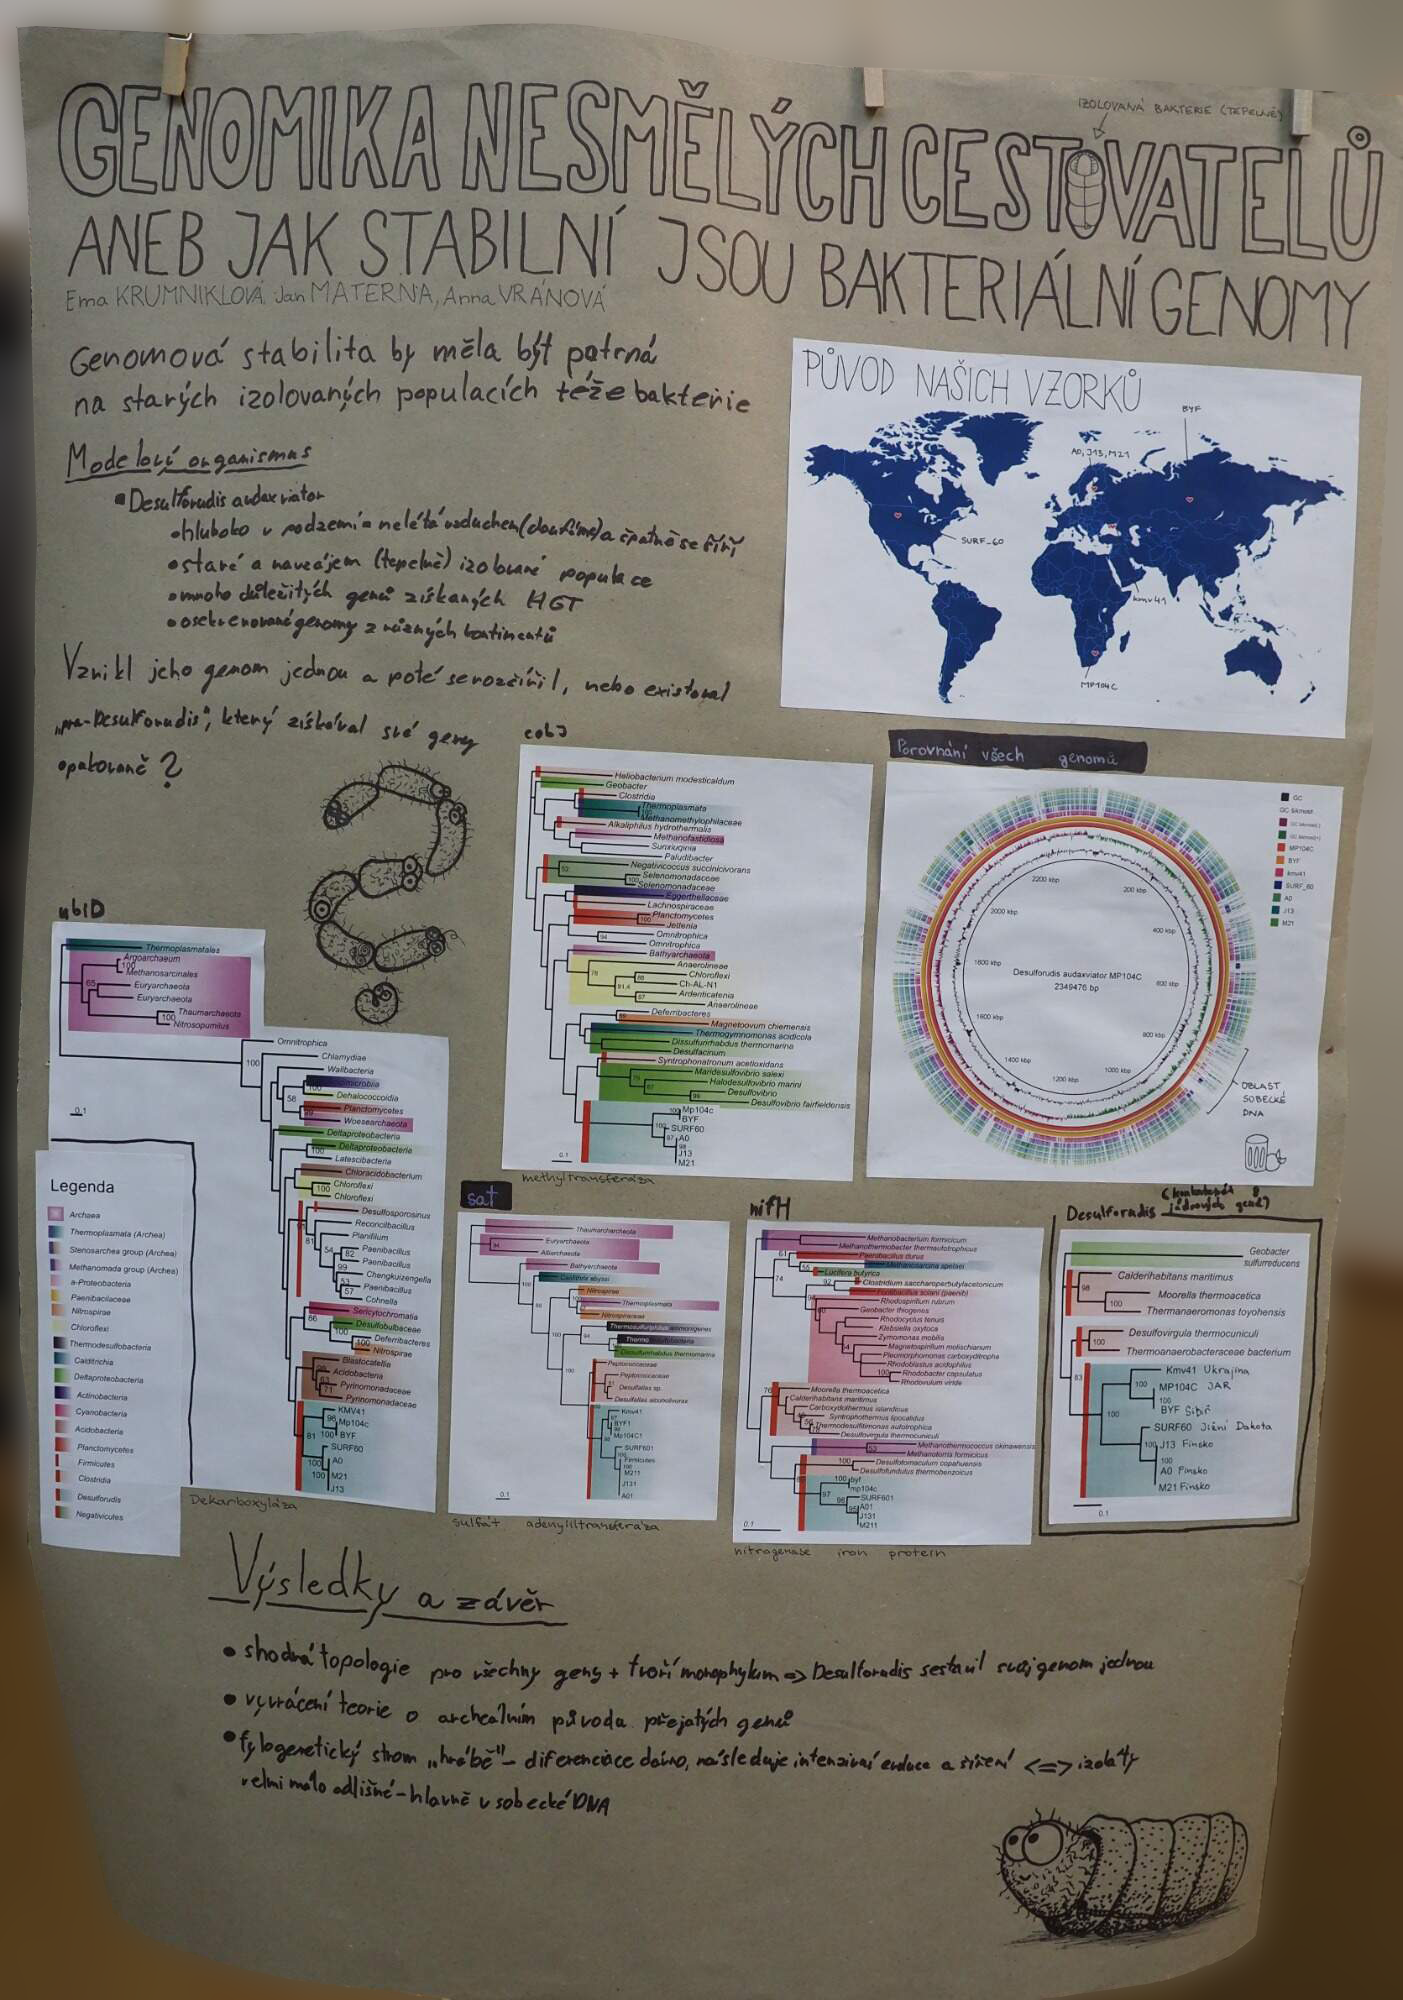 IZOLOVANÁ BAKTERIE (TEPELNĚ)
GENOMIKA NESMĚLÝCH CESTOVATELŮ
ANEB JAK STABILNÍ JSOU BAKTERIÁLNÍ GENOMY
Ema KRUMNIKLOVÁ, Jan MATERNA, Anna VRÁNOVÁ
Genomová stabilita by měla být patrná
na starých izolovaných populacích téže bakterie
Modeloví organismus
Desulforudis audaxviator
hluboko v podzemí = nelétá vzduchem (doufáme) a špatně se šíří
staré a navzájem (tepelně) izolované populace
mnoho důležitých genů získaných HGT
osekvenované genomy z různých kontinentů
Vznikl jeho genom jednou a poté se rozšířil, nebo existoval
"pra-Desulforudis", který získával své geny
opakovaně?
PŮVOD NAŠICH VZORKŮ
BYF
A0, J13, M21
SURF_60
kmv41
MP104C
cobJ
Heliobacterium modesticaldum
Geobacter
Clostridia
Thermoplasmata
100
Methanomethylophilaceae
Alkaliphilus hydrothermalis
Methanofastidiosa
Sunxiuqinia
Paludibacter
Negativicoccus succinicivorans
Selenomonadaceae
100
Selenomonadaceae
Eggerthellaceae
Lachnospiraceae
Planctomycetes
100
Jettenia
Omnitrophica
94
Omnitrophica
Bathyarchaeota
Anaerolineae
78
Chloroflexi
Ch-AL-N1
91.4
Ardenticatenia
87
Anaerolineae
Deferribacteres
Magnetoovum chiemensis
Thermogymnomonas acidicola
Dissulfurirhabdus thermomarina
Desulfacinum
Syntrophonatronum acetioxidans
Maridesulfovibrio salexi
Halodesulfovibrio marini
Desulfovibrio
Desulfovibrio fairfieldensis
100 Mp104c
BYF
100 SURF60
A0
J13
M21
0.1
methyltransferáza
Porovnání všech genomů
GC
GC skmost
GC skmost(-)
GC skmost(+)
MP104C
BYF
kmv41
SURF_60
A0
J13
M21
2200 kbp
200 kbp
2000 kbp
400 kbp
1800 kbp
Desulforudis audaxviator MP104C
2349476 bp
600 kbp
1600 kbp
800 kbp
1400 kbp
1000 kbp
1200 kbp
OBLAST
SOBECKÉ
DNA
ubiD
Thermoplasmatales
Argoarchaeum
100
Methanosarcinales
65
Euryarchaeota
Euryarchaeota
Thaumarchaeota
100
Nitrosopumilus
Omnitrophica
100
Chlamydiae
Wallbacteria
100
Dehalococcoidia
58
Planctomycetes
99
Woesearchaeota
Deltaproteobacteria
Deltaproteobacteria
100
Latescibacteria
Chloracidobacterium
Chloroflexi
100
Chloroflexi
Desulfosporosinus
Reconcilbacillus
81
Planifilum
54
Paenibacillus
82
Paenibacillus
99
Chengkuizengella
53
Paenibacillus
57
Cohnella
Sericytochromatia
66
Desulfobulbaceae
100
Deferribacteres
100
Nitrospirae
Blastocatellia
Acidobacteria
63
Pyrinomonadaceae
71
Pyrinomonadaceae
KMV41
98 Mp104c
100 BYF
81
SURF60
100 A0
100 M21
J13
0.1
Dekarboxyláza
Legenda
Archaea
Thermoplasmata (Archea)
Stenosarchea group (Archea)
Methanomada group (Archea)
a-Proteobacteria
Paenibacilaceae
Nitrospirae
Chloroflexi
Thermodesulfobacteria
Calditrichia
Deltaproteobacteria
Actinobacteria
Cyanobacteria
Acidobacteria
Planctomycetes
Firmicutes
Clostridia
Desulforudis
Negativicutes
sat
Thaumarcharcheota
Euryarchaeota
94
Altiarchaeota
Bathyarchaeota
Caldithrix abyssi
Nitrospirae
Thermoplasmata
Nitrospiraceae
Thermosulfuriphilus ammonigenes
Dissulfurirhabdus thermomarina
Peptococcaceae
Peptococcaceae
Desulfallas sp.
Desulfallas alcoholivorax
Kmv41
BYF1
Mp104C1
SURF601
Firmicutes
M211
J131
A01
0.1
sulfát adenylyltransferáza
nifH
Methanobacterium formicicum
Methanothermobacter thermautotrophicus
61
Paenibacillus durus
Methanosarcina spelaei
55
Lucifera butyrica
74
92
Clostridium saccharoperbutylacetonicum
Fontibacillus solani (paenib)
Rhodospirillum rubrum
Geobacter thiogenes
Rhodocyclus tenuis
Klebsiella oxytoca
Zymomonas mobilis
Magnetospirillum molischianum
Pleomorphomonas carboxyditropha
Rhodoblastus acidophilus
100
Rhodobacter capsulatus
Rhodovulum viride
76
Moorella thermoacetica
Calderihabitans maritimus
Carboxydothermus islandicus
Syntrophothermus lipocalidus
Thermodesulfitimonas autotrophica
Desulfovirgula thermocuniculi
Methanothermococcus okinawensis
53
Methanotorris formicicus
100
Desulfotomaculum copahuensis
Desulfofundulus thermobenzoicus
100 byf
mp104c
97
SURF601
A01
J131
M211
0.1
nitrogenase iron protein
Desulforudis
Geobacter
sulfurreducens
Calderihabitans maritimus
98
Moorella thermoacetica
100
Thermanaeromonas toyohensis
Desulfovirgula thermocuniculi
100
Thermoanaerobacteraceae bacterium
83
Kmv41 Ukrajina
100
MP104C JAR
100
BYF Sibiř
100
SURF60 Jižní Dakota
100 J13 Finsko
A0 Finsko
M21 Finsko
0.1
Výsledky a závěr
shodná topologie pro všechny geny + tvoří monophylum => Desulforudis sestavil svůj genom jednou
vyvrácení teorie o archeálním původu přejatých genů
fylogenetický strom "hrábě" - diferenciace dávno, následuje intenzivní evoluce a šíření <=> izoláty
velmi málo odlišné - hlavně v sobecké DNA